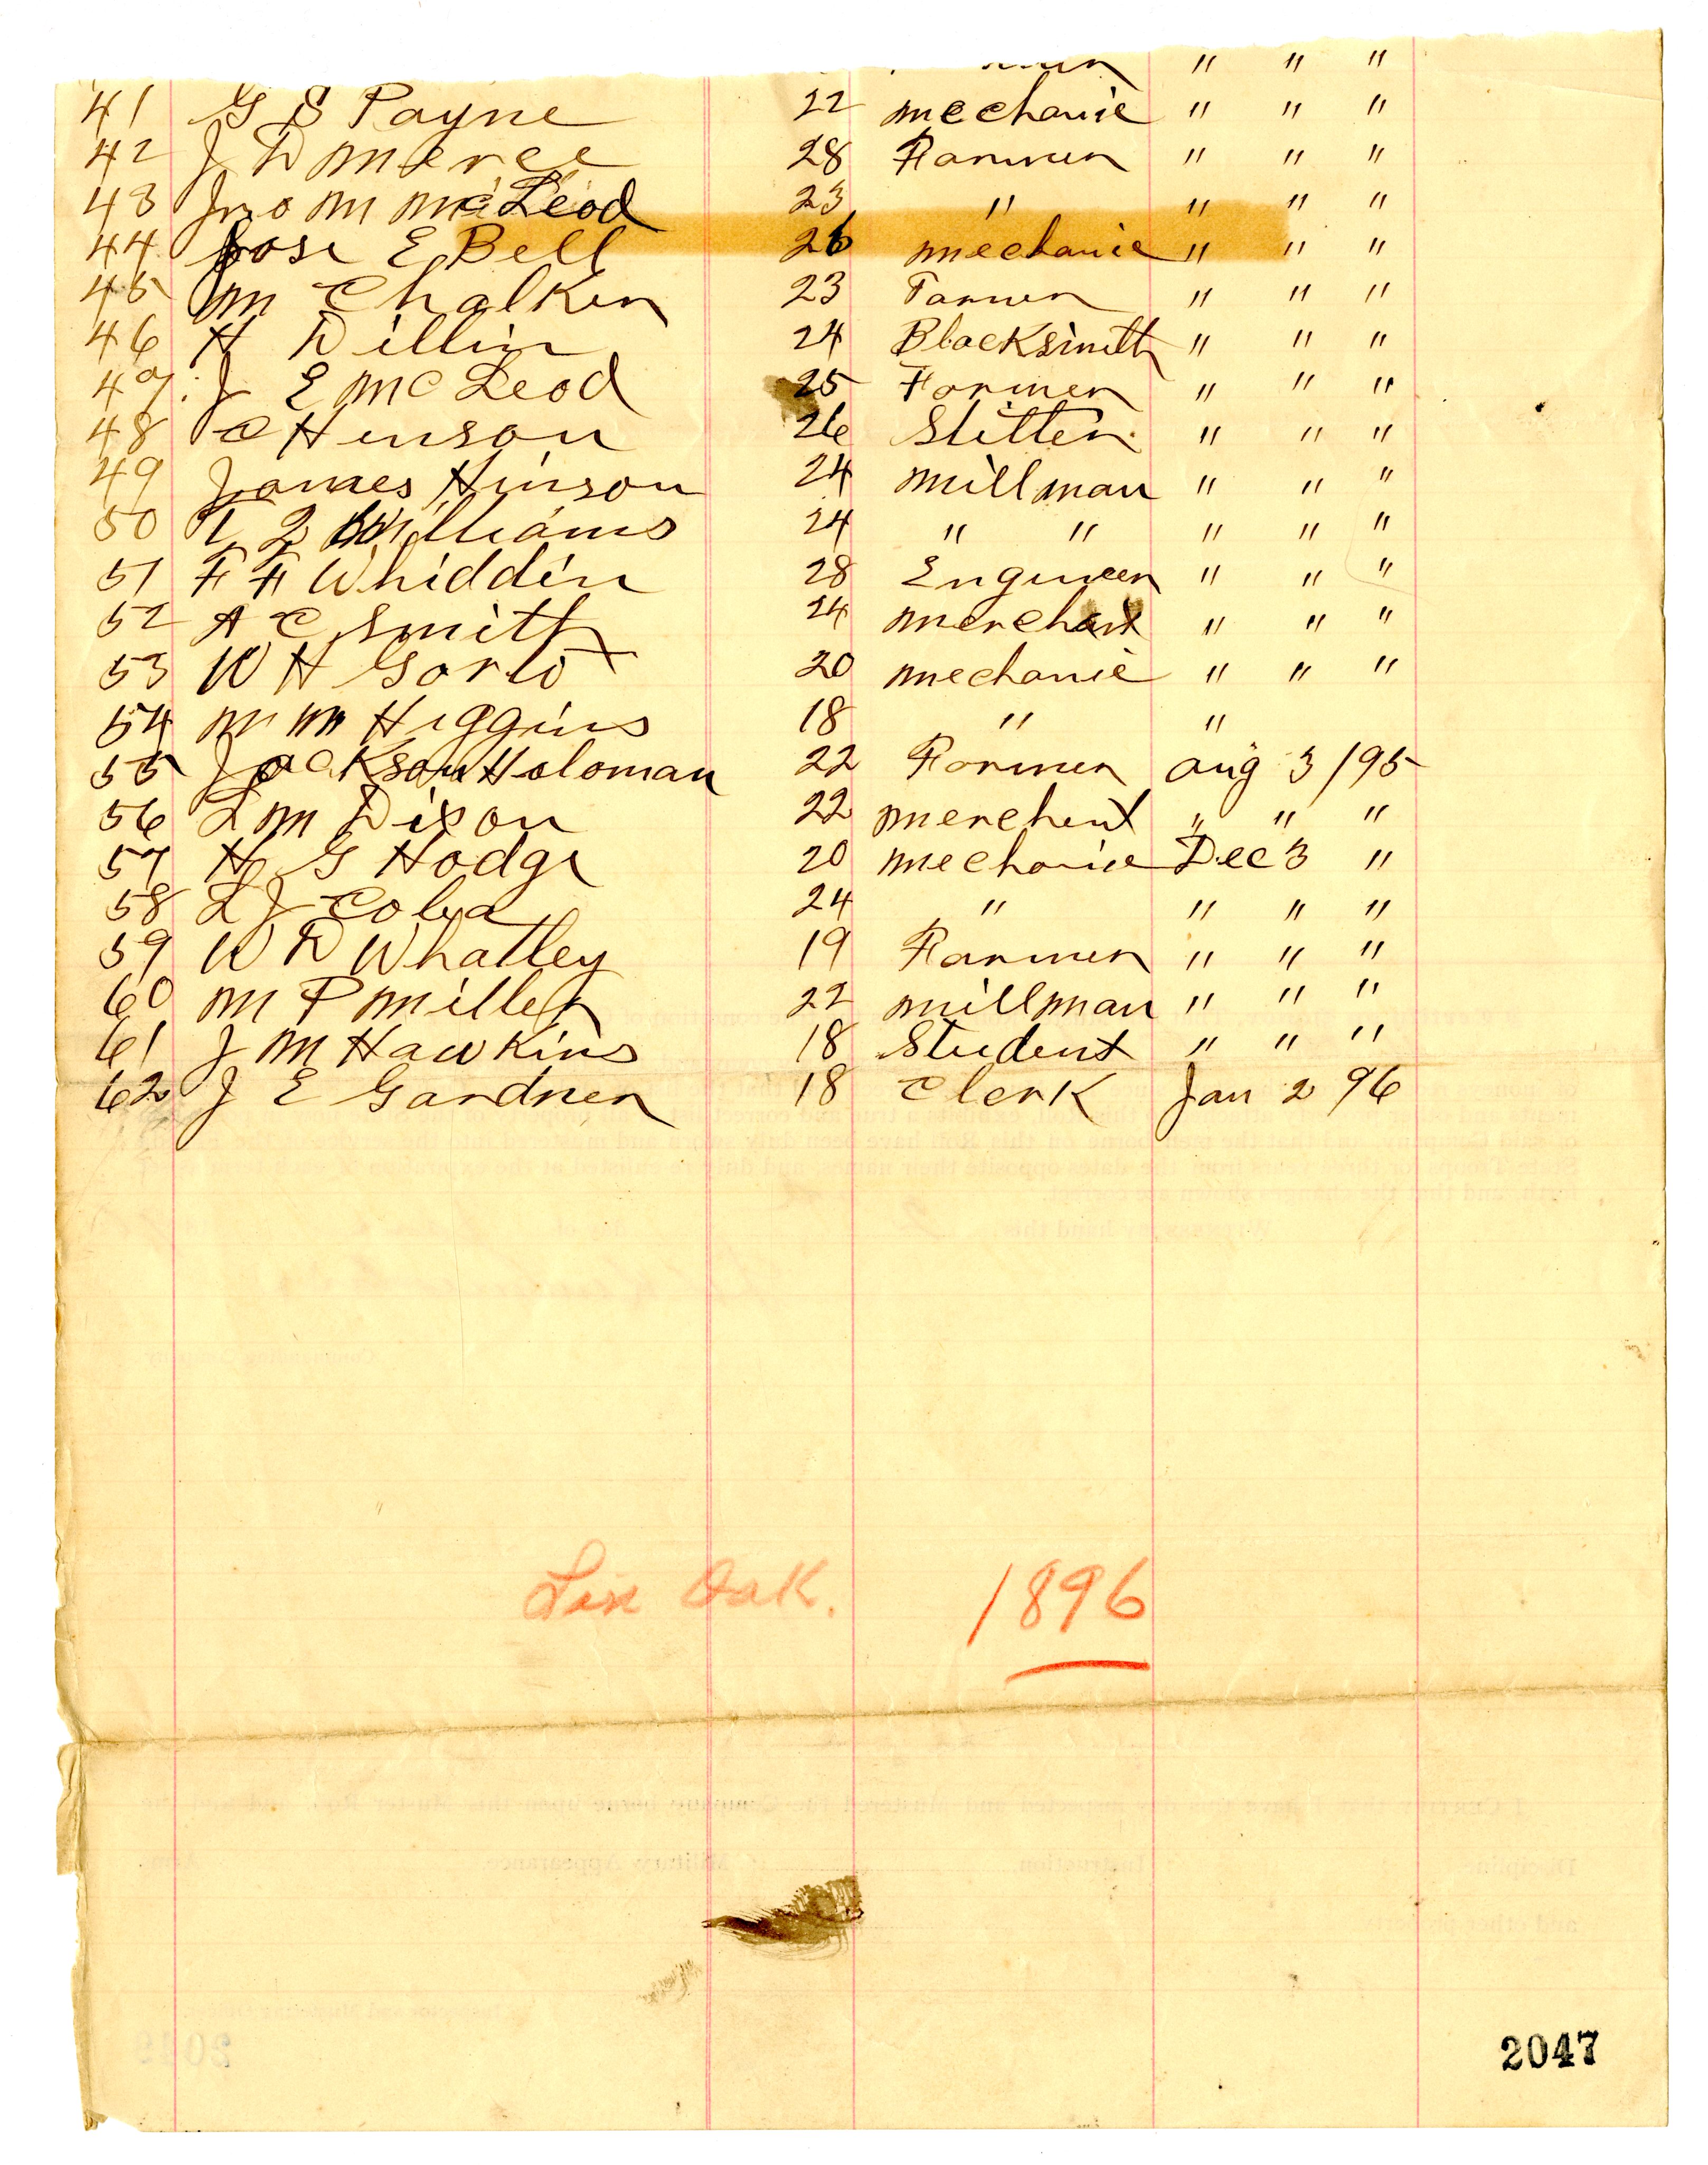 " " "
41 G S Payne 22 mechanic " " "
42 J D merce 28 Farmer " " "
43 Jno M McLeod 23 " " " "
44 Jose E Bell 26 mechanic " " "
45 M Chalker 23 Farmer " " "
46 H Dillin 24 Blacksmith " " "
47 J E McLeod 25 Farmer " " "
48 C Hinson 26 Slitter " " "
49 James Hinson 24 millman " " "
50 Williams 24 " " " " "
51 F F Whiddin 28 Engineer " " "
52 A C Smith 24 merchant " " "
53 W H 20 mechanic " " "
54 M M Higgins 18 " "
55 Jackson Holoman 22 Farmer Aug 3/95
56 L M Dixon 22 merchent " " "
57 H G Hodge 20 mechanic Dec 3 "
58 L J 24 " " " "
59 W D Whatley 19 Farmer " " "
60 M P Miller 22 millman " " "
61 J M Hawkins 18 Student " " "
62 J E Gardner 18 Clerk Jan 2 96
Live Oak. 1896
2047